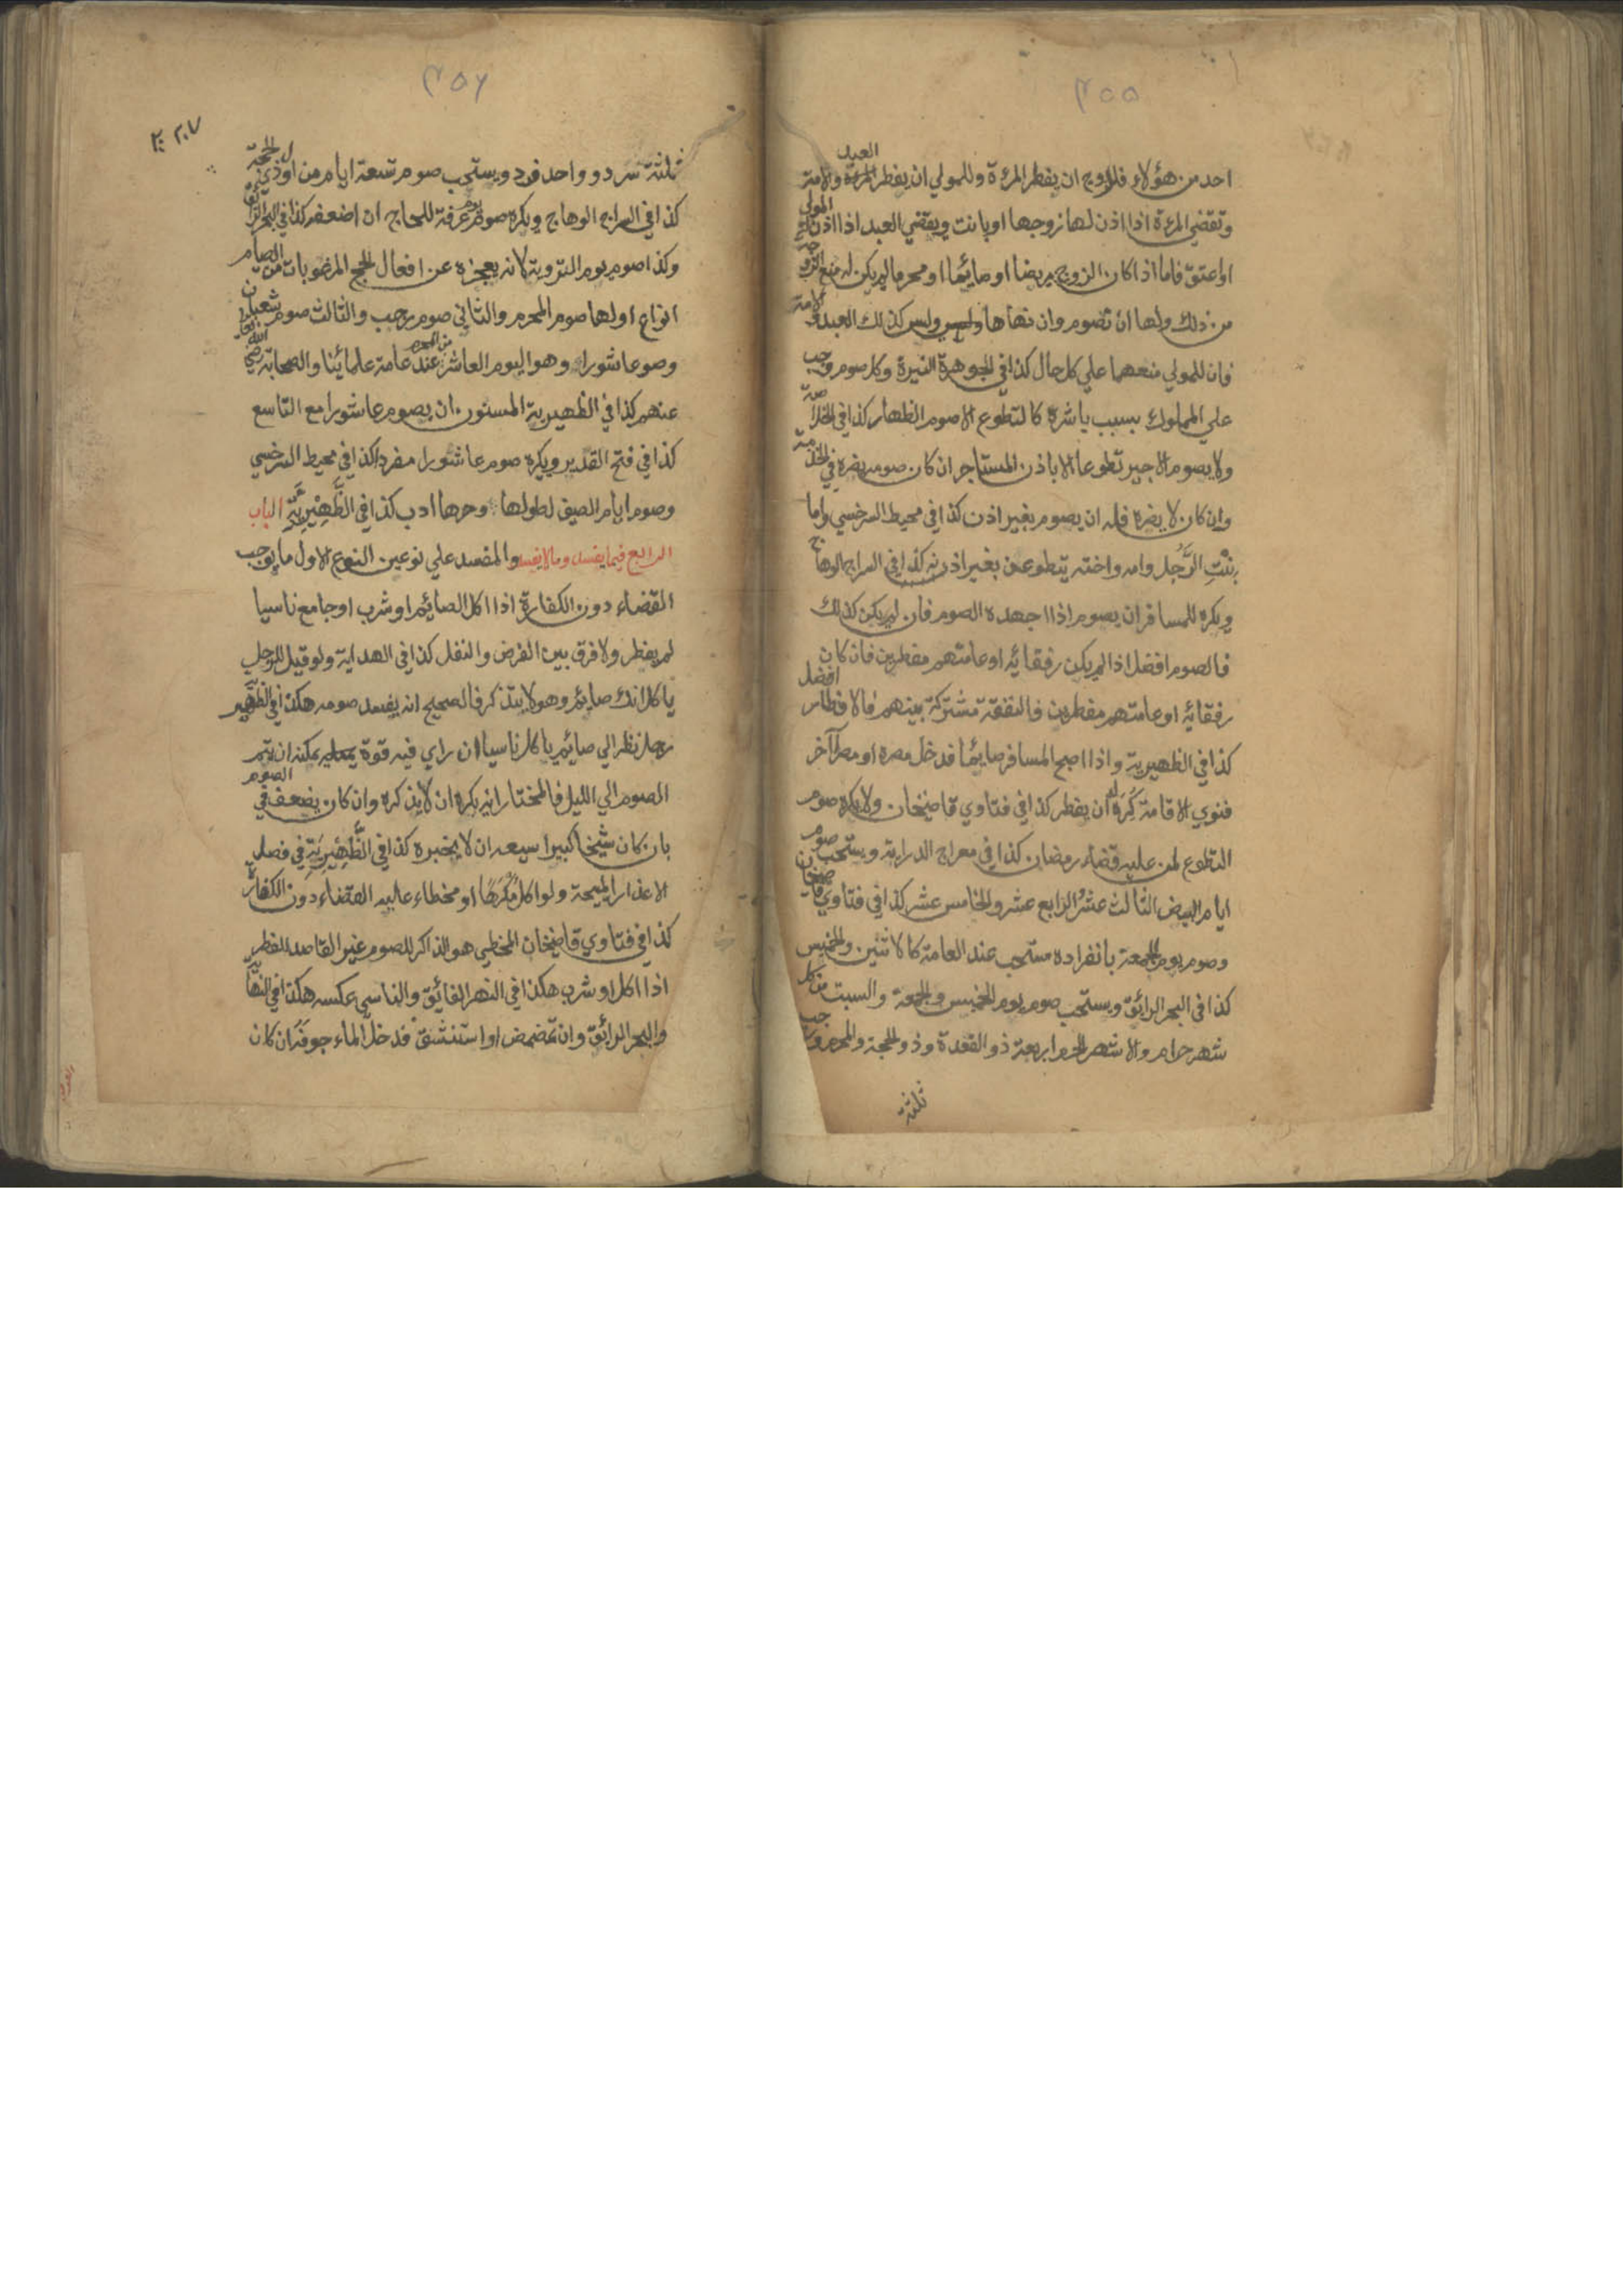 ٣٥٥
احد من هؤلاء فللزوج ان يفطر المرءة وللمولي ان يفطر العبد والامة
وتقضي المرءة اذا اذن لها زوجها او بانت ويقضي العبد اذا اذن له المولي
او اعتق فاما اذا كان الزوج مريضا او صائما او محرما لم يكن له منع الزوجة
من ذلك ولها ان تصوم وان نهاها وليس كذلك العبد والامة
فان للمولي منعهما علي كل حال كذا في الجوهرة النيرة وكل صوم وجب
علي المملوك بسبب باشره كالتطوع الا صوم الظهار كذا في الخلاصة
ولا يصوم الاجير تطوعا الا باذن المستاجر ان كان صومه يضره في الخدمة
وان كان لا يضره فله ان يصوم بغير اذن كذا في محيط السرخسي واما
بنت الرجل وامه واخته يتطوعن بغير اذنه كذا في السراج الوهاج
ويكره للمسافر ان يصوم اذا اجهده الصوم فان لم يكن كذلك
فالصوم افضل اذا لم يكن رفقائه او عامتهم مفطرين فان كان
رفقائه او عامتهم مفطرين فالنفقة مشتركة بينهم فالافطار افضل
كذا في الظهيرية واذا اصبح المسافر صايما فدخل مصره او مصرا آخر
فنوي الاقامة كره له ان يفطر كذا في فتاوي قاضيخان ولا يكره صوم
التطوع لمن عليه قضاء رمضان كذا في معراج الدراية ويستحب صوم
ايام البيض الثالث عشر الرابع عشر والخامس عشر كذا في فتاوي قاضيخان
وصوم يوم الجمعة بانفراده مستحب عند العامة كالاثنين والخميس
كذا في البحر الرائق ويستحب صوم يوم الخميس والجمعة والسبت من كل
شهر حرام والاشهر الحرم اربعة ذو القعدة وذو الحجة والمحرم ورجب
ثلثة
٣٥٦
٢٠٧
ثلثة سرد وواحد فرد ويستحب صوم تسعة ايام من اول ذي الحجة
كذا في السراج الوهاج ويكره صوم يوم عرفة للحاج ان اضعفه كذا في البحر الرائق
وكذا صوم يوم التروية لانه يعجزه عن افعال الحج المرغوبات من الصيام
انواع اولها صوم المحرم والثاني صوم رجب والثالث صوم شعبان
وصو عاشورا وهو اليوم العاشر من المحرم عند عامة علمائنا والصحابة رضي الله تعالي
عنهم كذا في الظهيرية المسنون ان يصوم عاشورا مع التاسع
كذا في فتح القدير ويكره صوم عاشورا مفردا كذا في محيط السرخسي
وصوم ايام الصيف لطولها وحرها ادب كذا في الظهيرية الباب
الرابع فيما يفسد وما لا يفسد والمفسد علي نوعين النوع الاول ما يوجب
القضاء دون الكفارة اذا اكل الصائم او شرب او جامع ناسيا
لم يفطر ولا فرق بين الفرض والنفل كذا في الهداية ولو قيل للرجل
ياكل انك صايم وهو لا يتذكر فالصحيح انه يفسد صومه هكذا في الظهير
رجل نظر الي صائم ياكل ناسيا ان راي فيه قوة يمكنه ان يتم
الصوم الي الليل فالمختار انه يكره ان لا يذكره وان كان يضعف في الصوم
بان كان شيخا كبيرا سيعه ان لا يخبره كذا في الظهيرية في فصل
الاعذار المبيحة ولو اكل مكرها او مخطاء عاليه القضاء دون الكفارة
كذا في فتاوي قاضيخان المخطي هو الذاكر للصوم غير القاصد للفطر
اذا اكل او شرب هكذا في النهر الفائق والناسي عكسه هكذا في النهاية
والبحر الرائق وان تمضمض او استنشق فدخل الماء جوفه ان كان